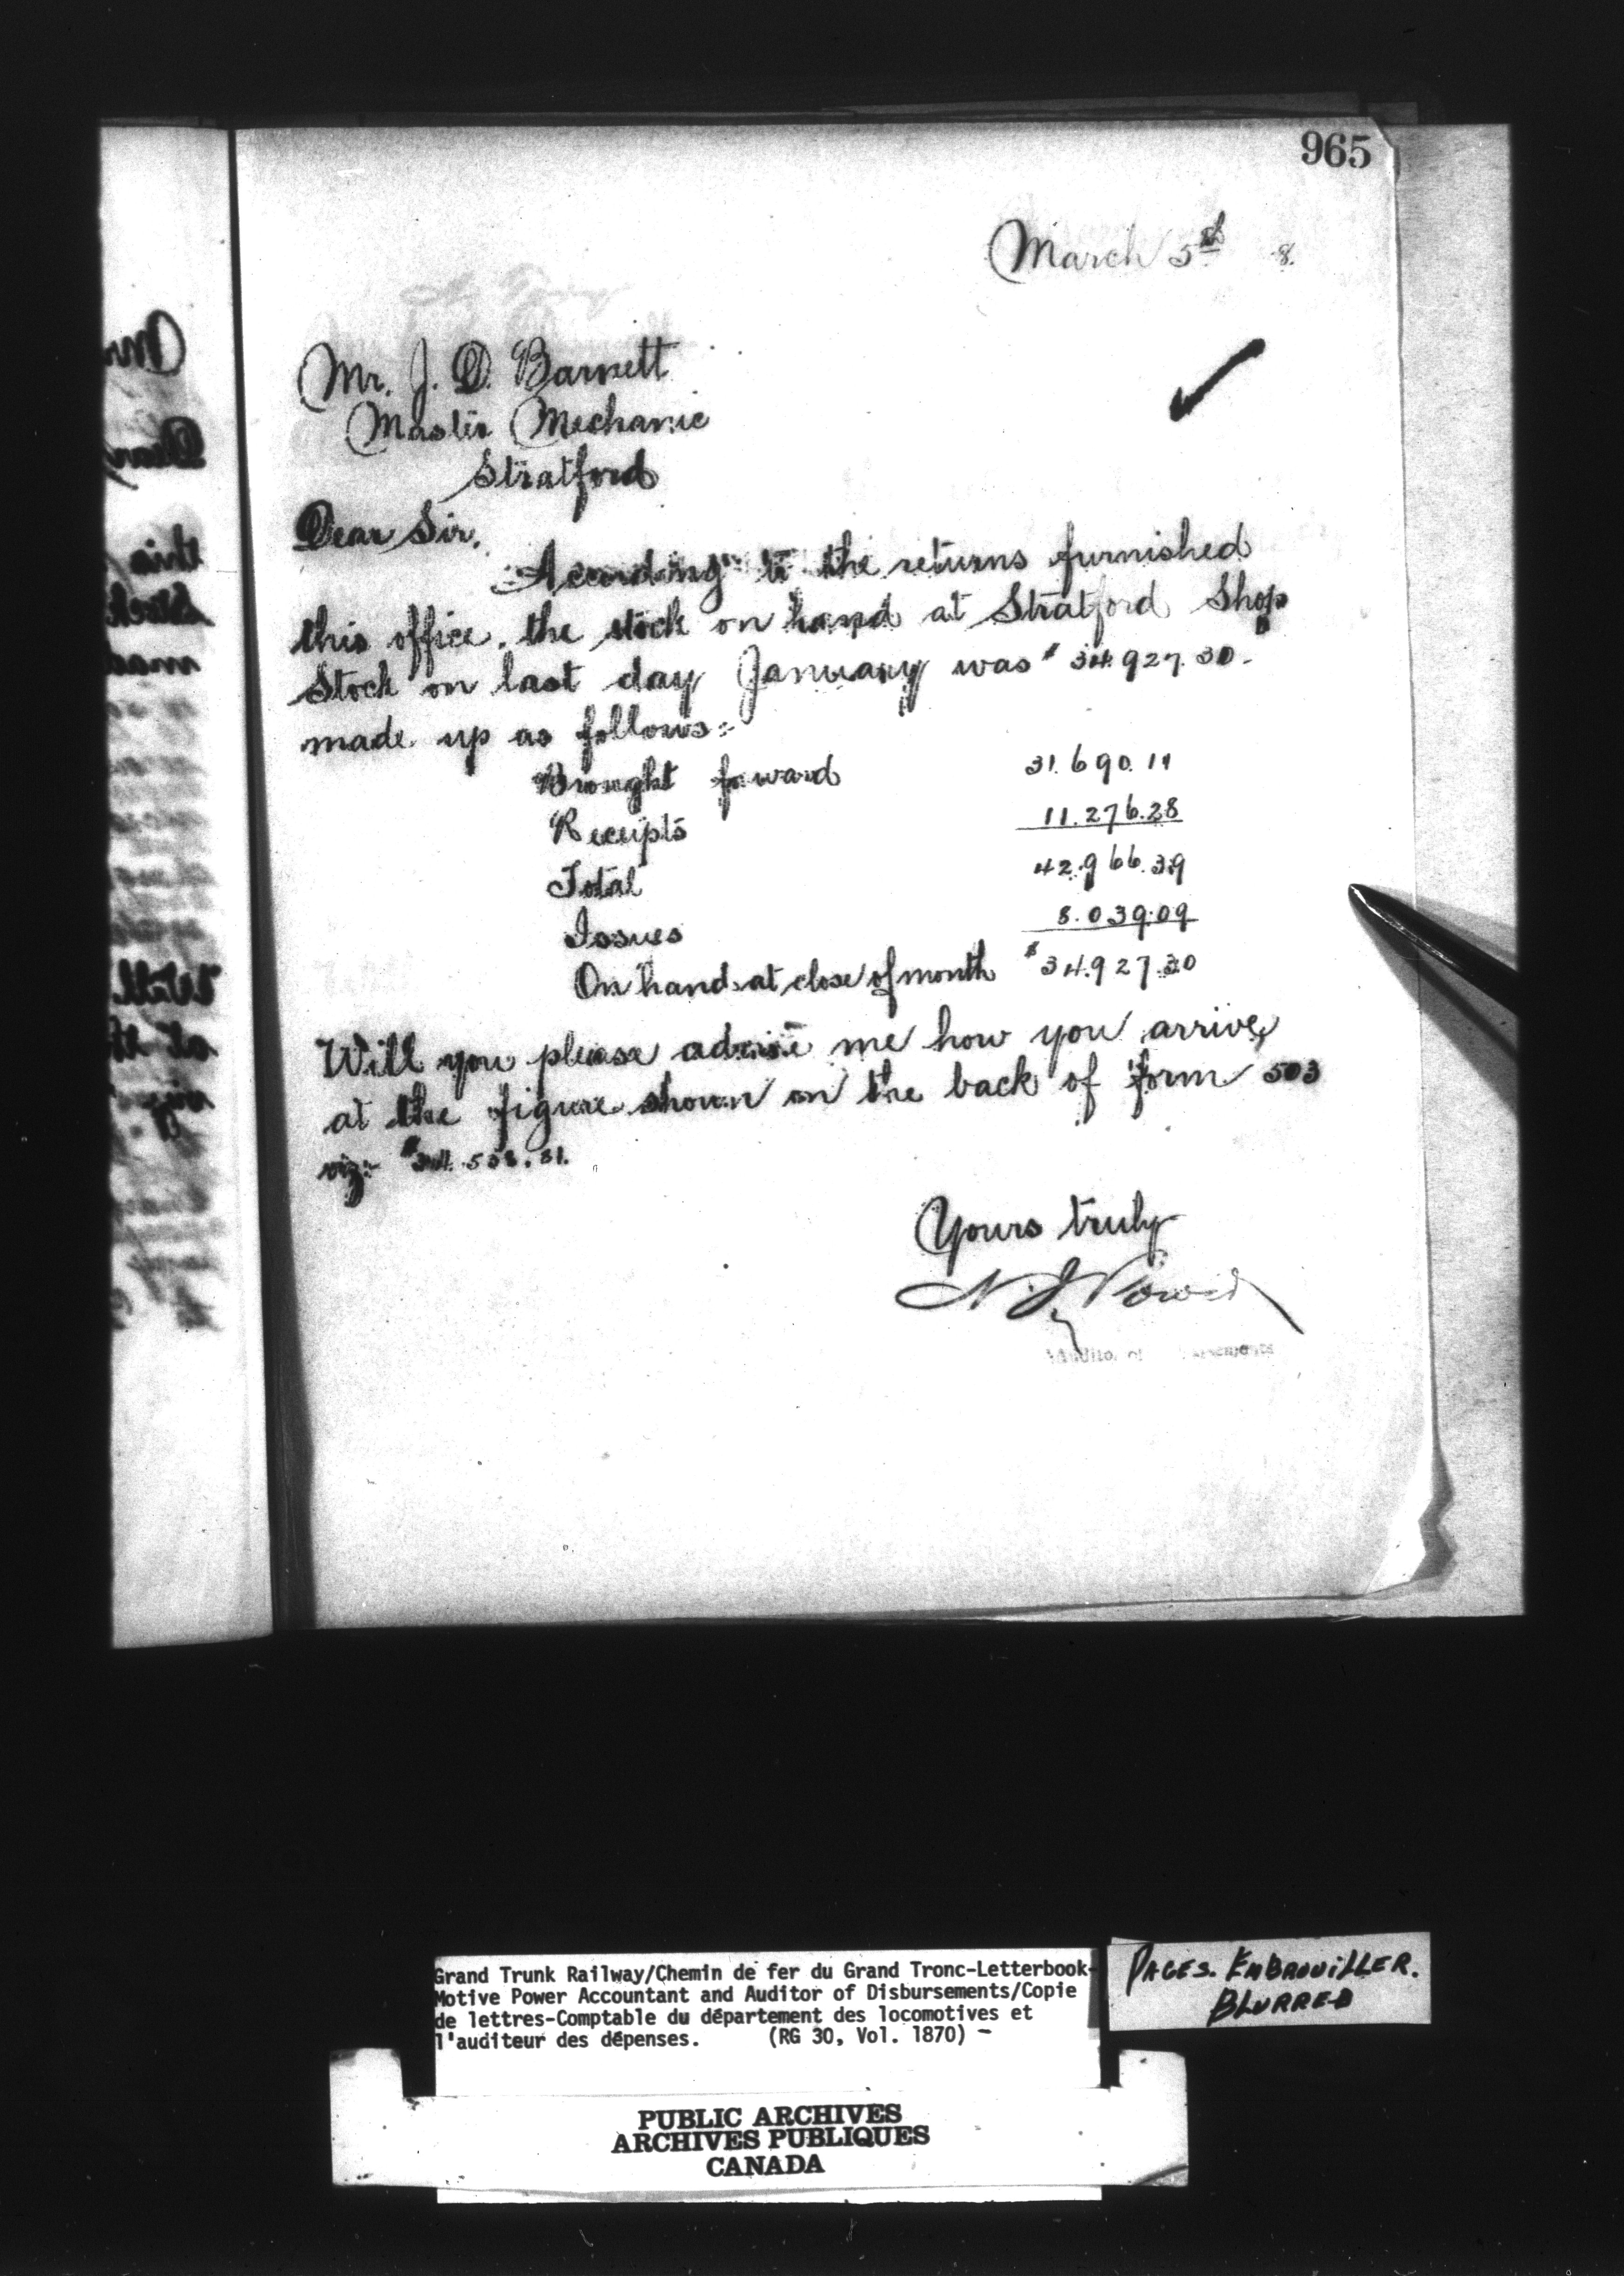 965
March 5th 8.
Mr. J. D. Barnett
Master Mechanic
Stratford
Dear Sir,
According to the returns furnished
this office, the stock on hand at Stratford Shop
Stock on last day January was $34.927.30.
made up as follows:-
Brought forward 31.690.11
Receipts 11.276.28
Total 42.966.39
Issues 8.039.09
On hand at close of month $34.927.30
Will you please advise me how you arrive
at the figure shown on the back of form 503
viz:-
Yours truly
Grand Trunk Railway/Chemin de fer du Grand Tronc-Letterbook-
Motive Power Accountant and Auditor of Disbursements/Copie
de lettres-Comptable du département des locomotives et
l'auditeur des dépenses. (RG 30, Vol. 1870) -
PAGES. EMBROUILLER.
BLURRED
PUBLIC ARCHIVES
ARCHIVES PUBLIQUES
CANADA